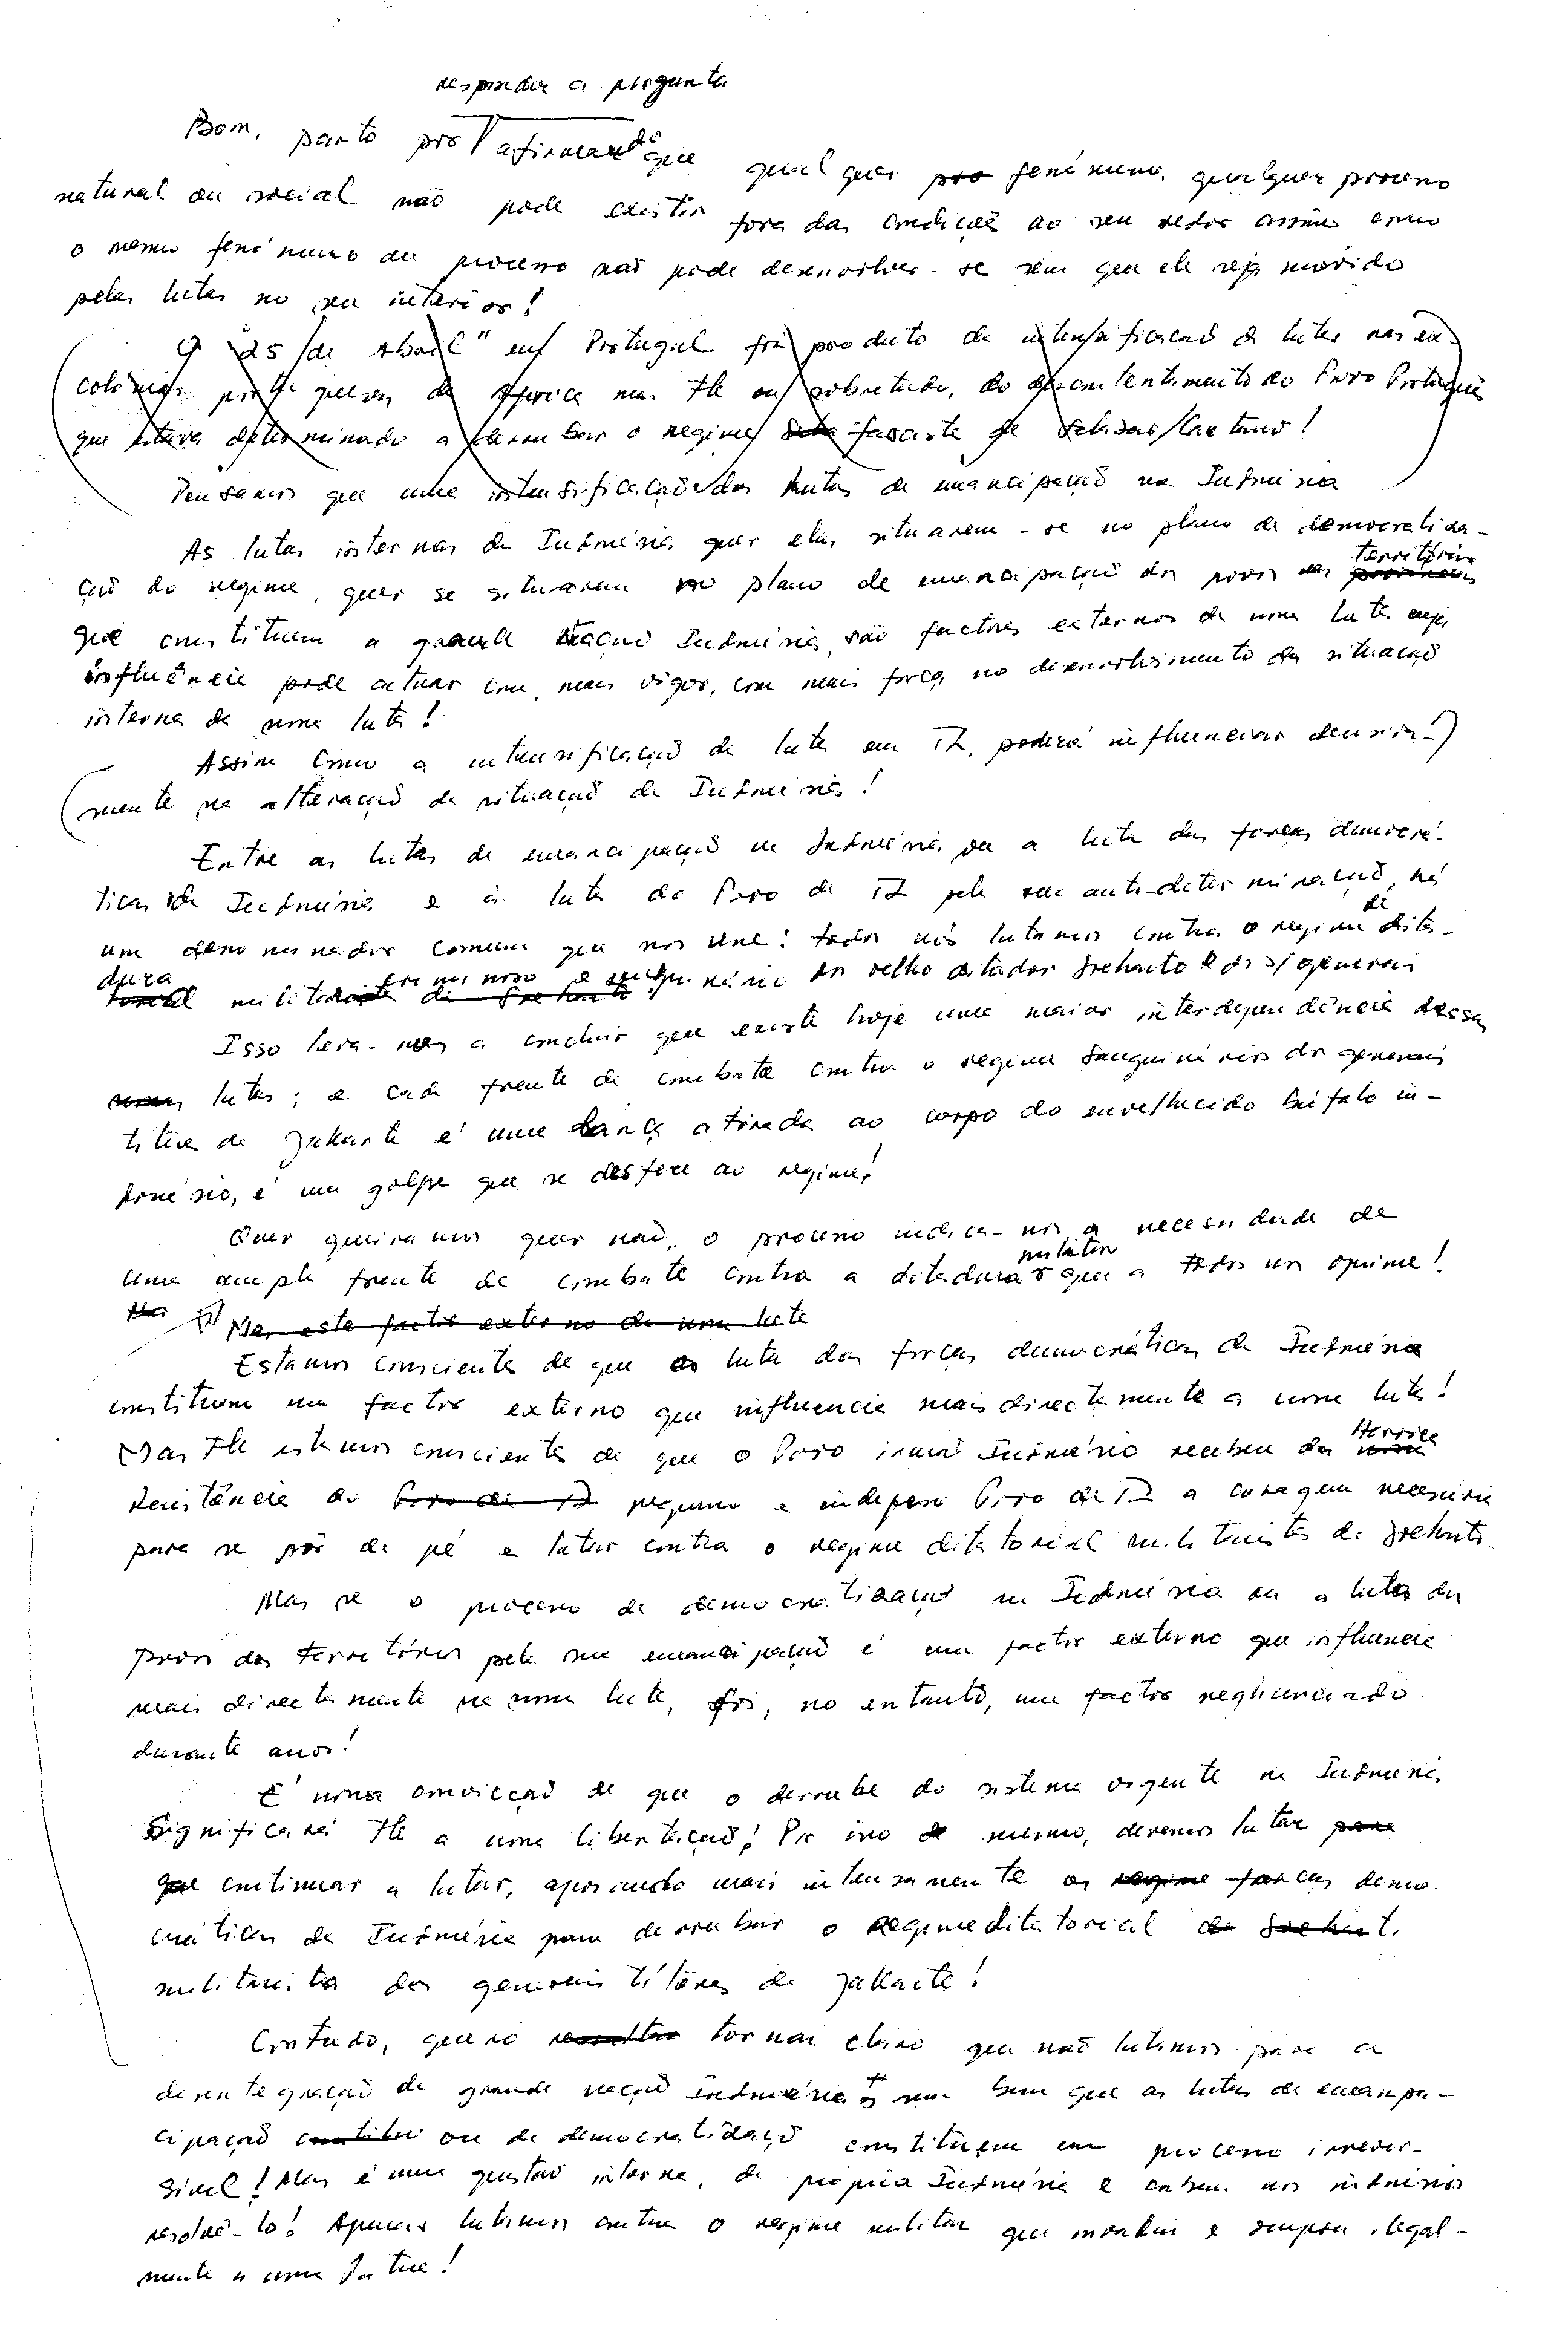 responder a pergunta
Bom, parto pro afirmando que qualquer pro fenómeno, qualquer processo
natural ou social não pode existir fora das condições ao seu redor assim como
o mesmo fenómeno ou processo não pode desenvolver-se sem que ele seja movido
pelas lutas no seu interior!
O "25 de Abril" em Portugal foi produto da intensificação da luta nas ex-
colónias portuguesas de África mas tb ou sobretudo, do descontentamento do Povo Português
que estava determinado a derrubar o regime fascista de Salazar/Caetano!
Pensamos que uma intensificação das lutas de emancipação na Indonésia
As lutas internas da Indonésia quer elas situarem-se no plano da democratiza-
ção do regime, quer se situarem no plano de emancipação dos povos dos territórios
que constituem a grande nação Indonésia, são factores externos da nossa luta cuja
influência pode actuar com mais vigor, com mais força no desenvolvimento da situação
interna da nossa luta!
Assim como a intensificação da luta em TL, poderá influenciar decisiva-
mente na alteração da situação da Indonésia!
Entre as lutas de emancipação na Indonésia ou a luta das forças democrá-
ticas da Indonésia e a luta do Povo de TL pela sua auto-determinação, há
um denominador comum que nos une: todos nós lutamos contra o regime de dita-
dura torial militarista criminoso e sanguinário do velho ditador Suharto e de s/ generais
Isso leva-nos a concluir que existe hoje uma maior interdependência dessas
lutas; e cada frente de combate contra o regime sanguinário dos generais
títeres de Jakarta é uma lança atirada ao corpo do envelhecido búfalo in-
donésio, é um golpe que se desfere ao regime!
Quer queiramos quer não, o processo indica-nos a necessidade de
uma ampla frente de combate contra a ditadura militar que a todos nos oprime!
Mas Mas este factor externo da nossa luta
Estamos conscientes de que as luta das forças democráticas da Indonésia
constituem um factor externo que influencia mais directamente a nossa luta!
Mas tb estamos conscientes de que o Povo irmão Indonésio recebeu da heroica
resistência do Povo de TL pequeno e indefeso Povo de TL a coragem necessária
para se pôr de pé e lutar contra o regime ditatorial militarista de Suharto.
Mas se o processo de democratização na Indonésia ou a luta dos
povos dos territórios pela sua emancipação é um factor externo que influencia
mais directamente na nossa luta, foi, no entanto, um factor negligenciado
durante anos!
É nossa convicção de que o derrube do sistema vigente na Indonésia
significará tb a nossa libertação! Por isso mesmo, devemos lutar para
que continuar a lutar, apoiando mais intensamente as regime forças demo-
cráticas da Indonésia para derrubar o regime ditatorial de Suharto
militarista dos generais títeres de Jakarta!
Contudo, quero tornar claro que não lutamos para a
desintegração da grande nação Indonésia se bem que as lutas de emanpa-
cipação ou de democratização constituem um processo irrever-
sível! Mas é uma questão interna, da própria Indonésia e cabem aos indonésios
resolvê-lo! Apenas lutamos contra o regime militar que invadiu e ocupou ilegal-
mente a nossa Pátria!